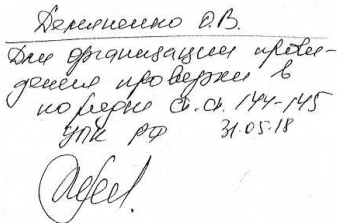 Демяненко О.В.
Для организации прове-
дения проверки в
порядке ст.ст. 144-145
УПК РФ 31.05.18